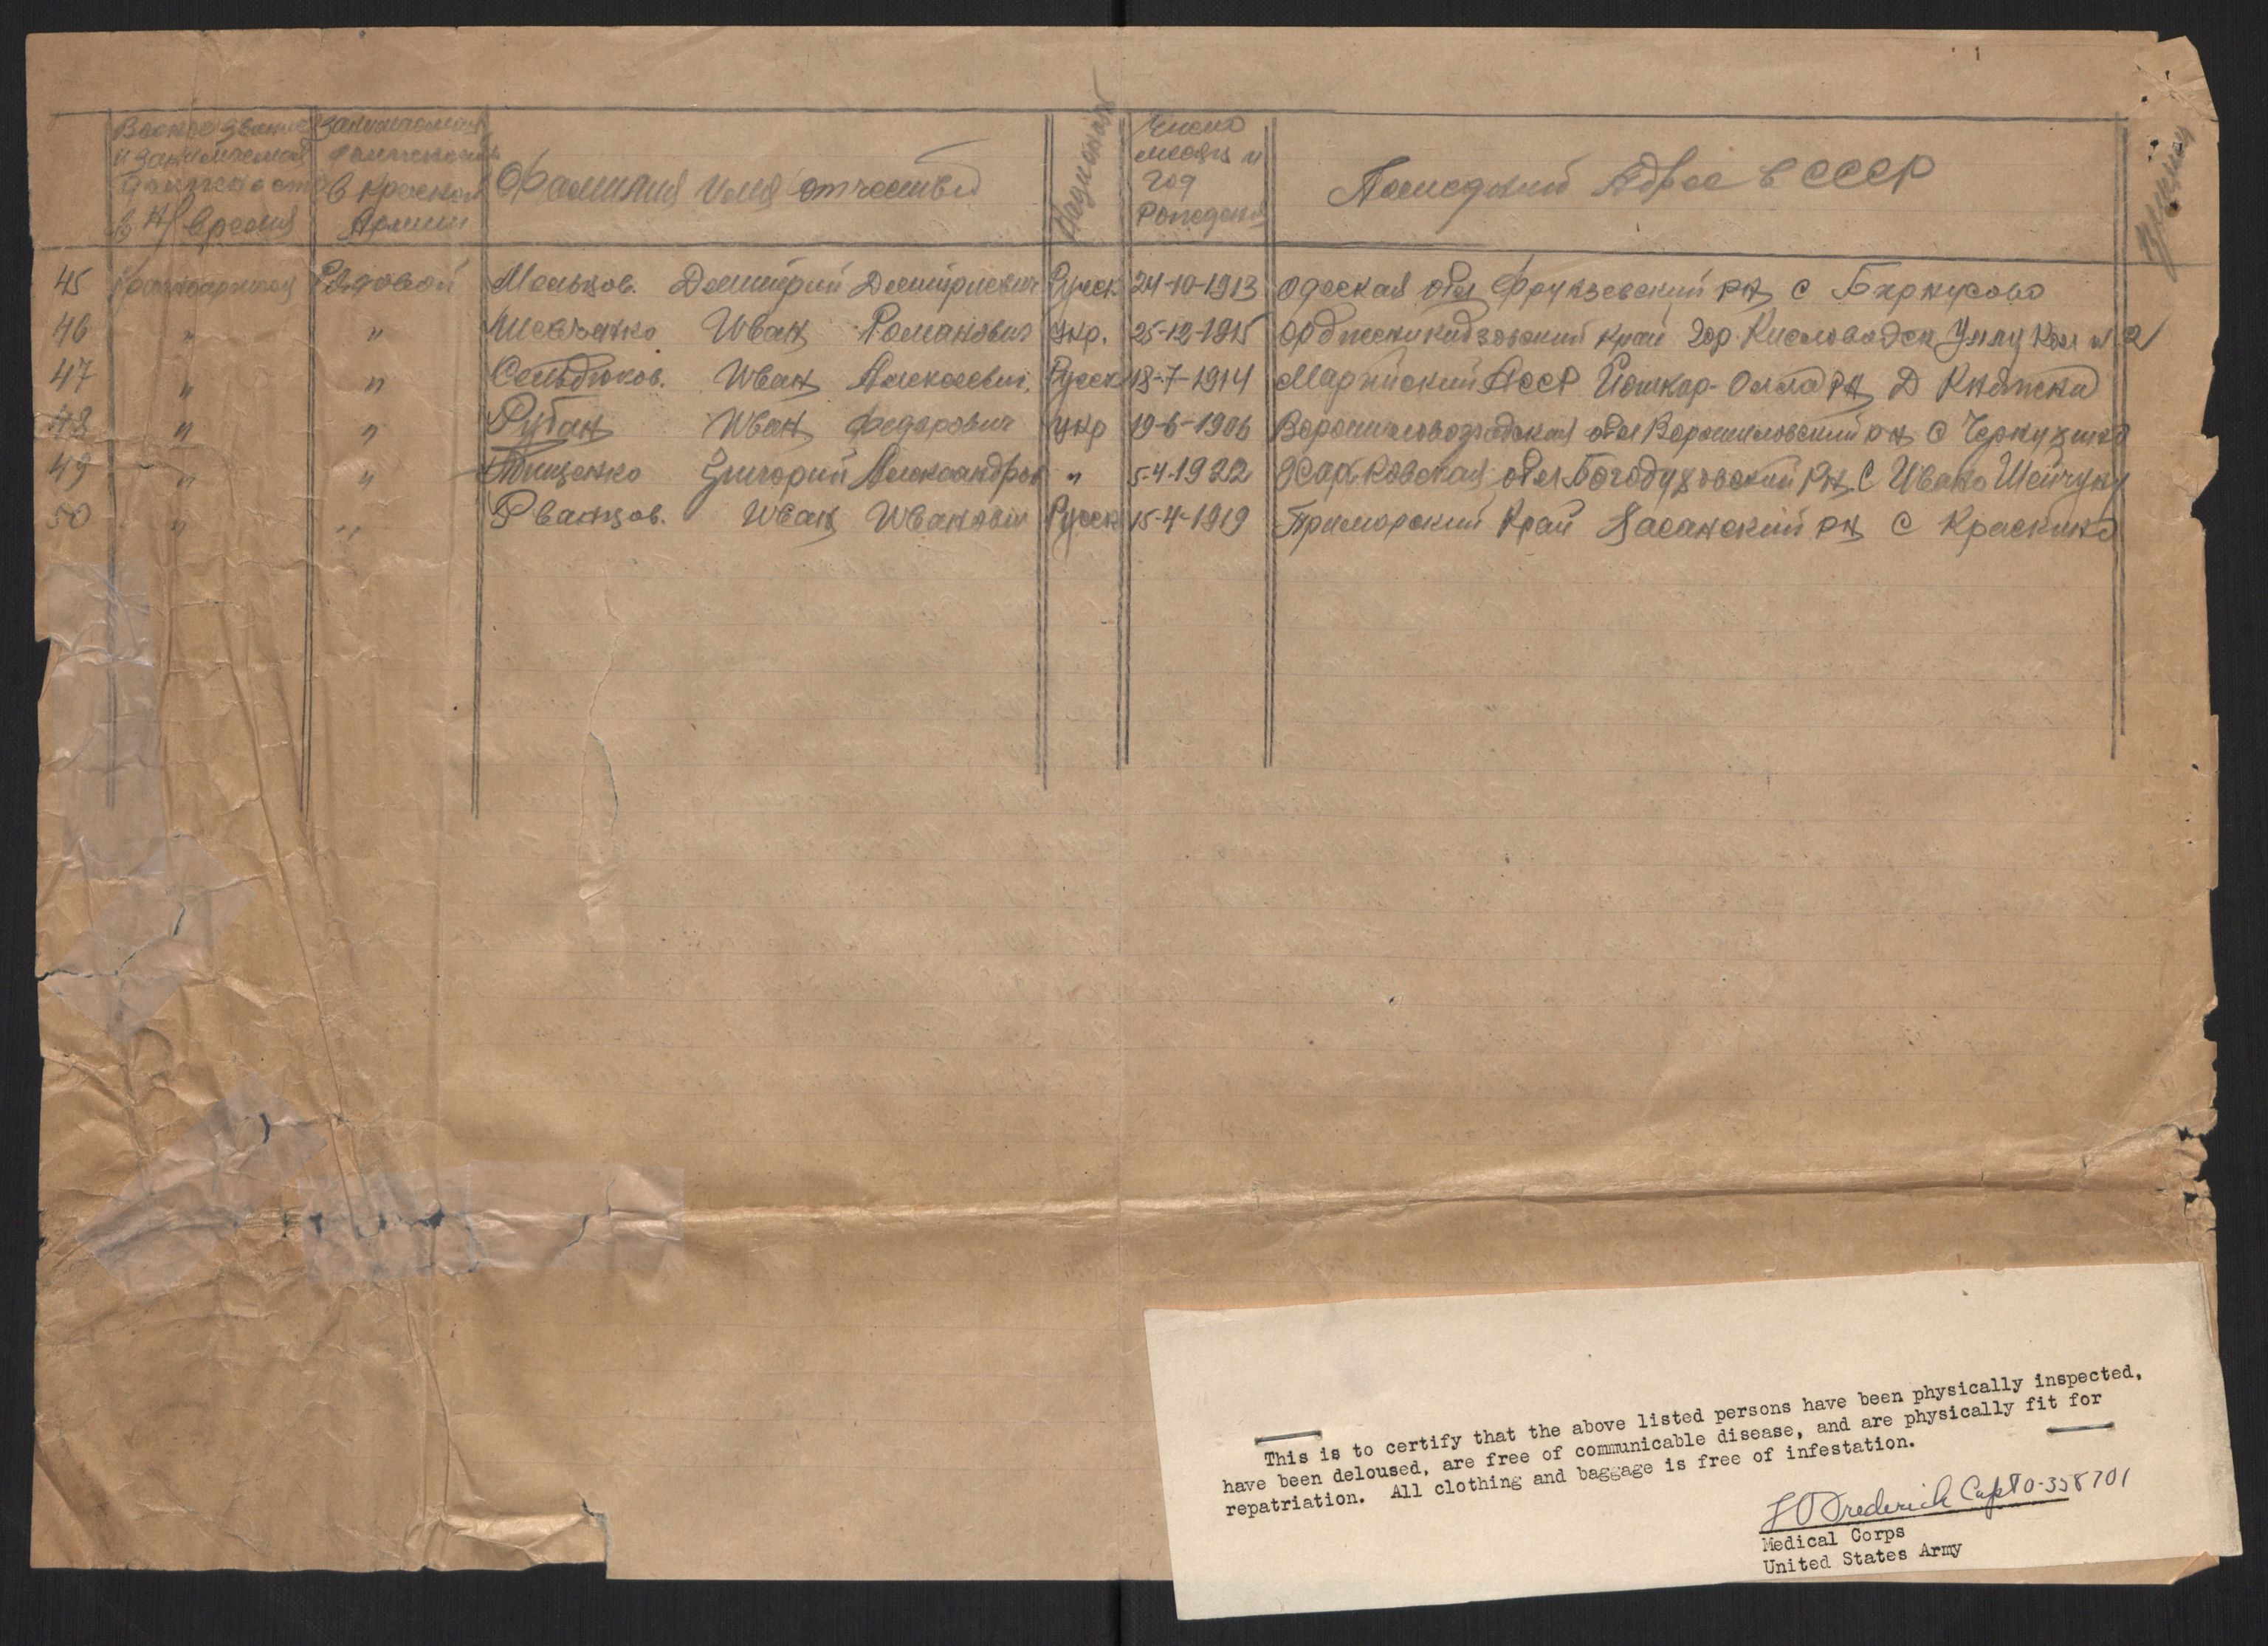 Военое звание
и занимаемая
должность
в Н/время
Занимаемая
должность
в Красной
Армии
Фамилия Имя отчество
Национальн
Число
месяц и
год
Рождения
Последний Адрес в СССР
45 Рядовой Мальцов. Дмитрий Дмитриевич Русск 24-10-1913 Одеская обл Фрунзевский рн с Баркусово
46 " " Шевченко Иван Романович укр. 25-12-1915 Орджоникидзовский край гор. Кисловодск
47 " " Сельдюков. Иван Алексеевич. Русск 18-7-1914 Марийский АССР Йошкар-Олла рн Д Княжена
48 " " Рубан Иван Федорович укр 19-6-1906 Ворошиловоградская обл Ворошиловский рн С Черкузино
49 " " Тищенко Григорий Александров " 5-4-1922 Харковская обл Богодуховский рн С Ивано Шейчуки
50 " " Рванцов. Иван Иванович Русск 15-4-1919 Приморский Край Хасанский рн С Краскино
This is to certify that the above listed persons have been physically inspected,
have been deloused, are free of communicable disease, and are physically fit for
repatriation. All clothing and baggage is free of infestation.
Frederick Capt O-358701
Medical Corps
United States Army